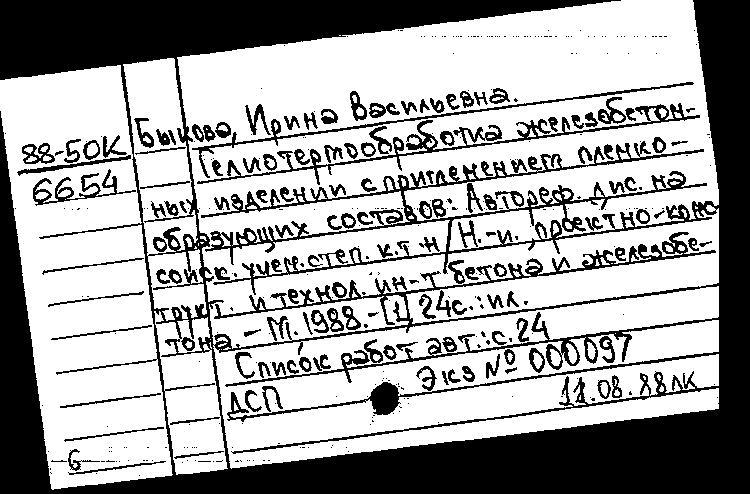 88-50К
6654
Быкова, Ирина Васильевна.
Гелиотермообработка железобетон-
ных изделений с применением пленко-
образующих составов: Автореф. дис. на
соиск. учен. степ. к.т.н/Н.-и., проектно-конс-
трукт. и технол. ин-т бетона и железобе-
тона. - М. 1988. - [1], 24с.: ил.
Список работ авт.: с. 24
ДСП Экз № 000097
11.08.88ЛК
6